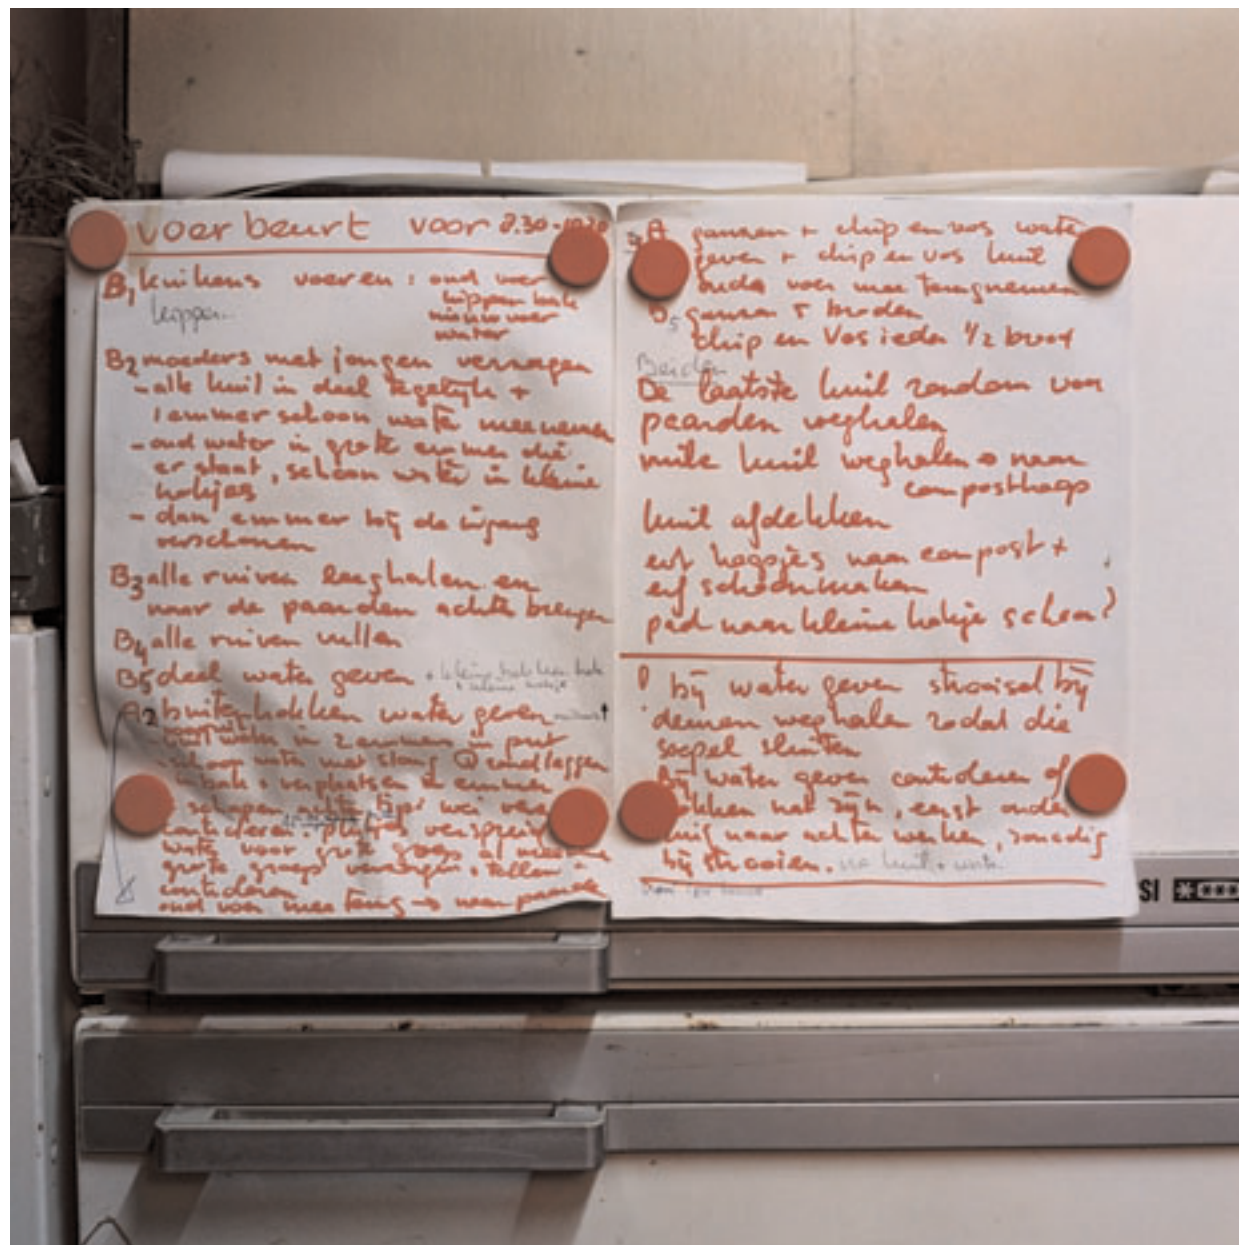 voerbeurt voor 8.30 - 10
B1 kuikens voeren : oud voer
kippen
kippen bak
nieuw voer
water
B2 moeders met jongen verzorgen
- alle kuil in deel tegelijk +
1 emmer schoon water meenemen
- oud water in grote emmer die
er staat, schoon water in kleine
hokjes
- dan emmer bij de ingang
verschonen
B3 alle ruiven leeghalen en
naar de paarden achter brengen
B4 alle ruiven vullen
B5 deel water geven
A2 buitenhokken water geven
water in 2 emmers in put
schoon water met slang
bak + verplaatsen emmer
schapen achter wei
controleren
water voor grote groep
grote groep verzorgen + tellen +
controleren
oud voer mee terug → naar paarden
A ganzen + chip en vos water
geven + chip en vos kuil
oude voer mee terugnemen
B5 ganzen 5 broden
chip en Vos ieder 1/2 brood
Beiden
De laatste kuil rondom voor
paarden weghalen
natte kuil weghalen → naar
composthoop
kuil afdekken
erf hoopjes naar compost +
erf schoonmaken
pad naar kleine hokje schoon?
! bij water geven strooisel bij
deuren weghalen zodat die
soepel sluiten
Bij water geven controleren of
hokken nat zijn, eerst oude
kuil naar achter werken, zonodig
bij strooien. na kuil + water
SI